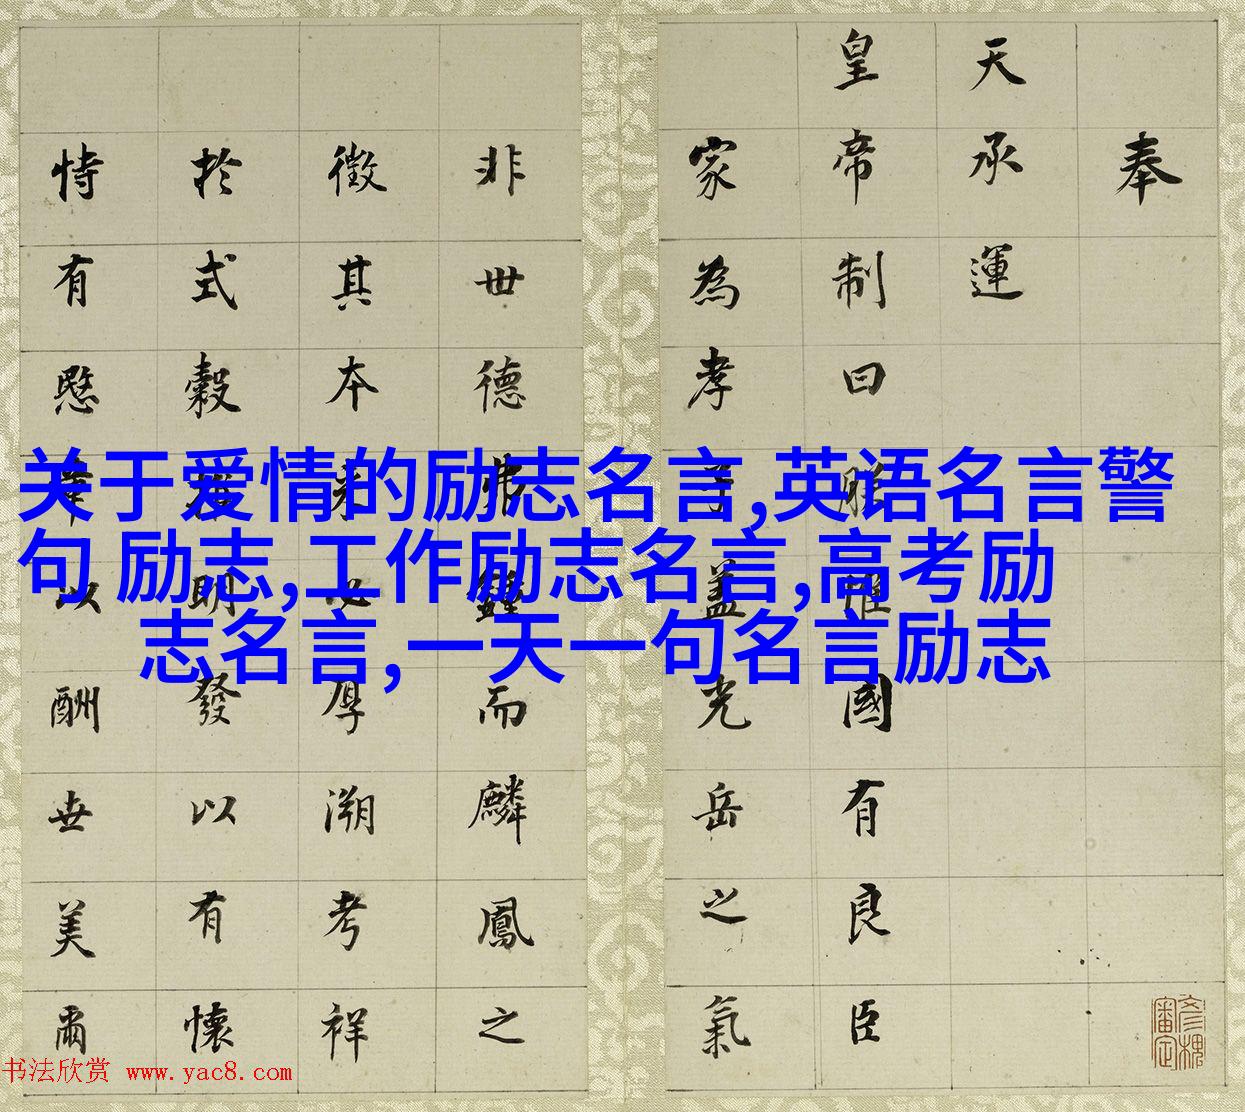 奉
天承運
皇帝制曰朕惟國有良臣
家為孝子蓋光岳之氣
非世德弗鍾而麟鳳之
徵其本來必厚溯考祥
於式穀明發以有懷
恃有愍章以酬世美爾
关于爱情的励志名言,英语名言警
句 励志,工作励志名言,高考励
志名言,一天一句名言励志
书法欣赏 www.yac8.com